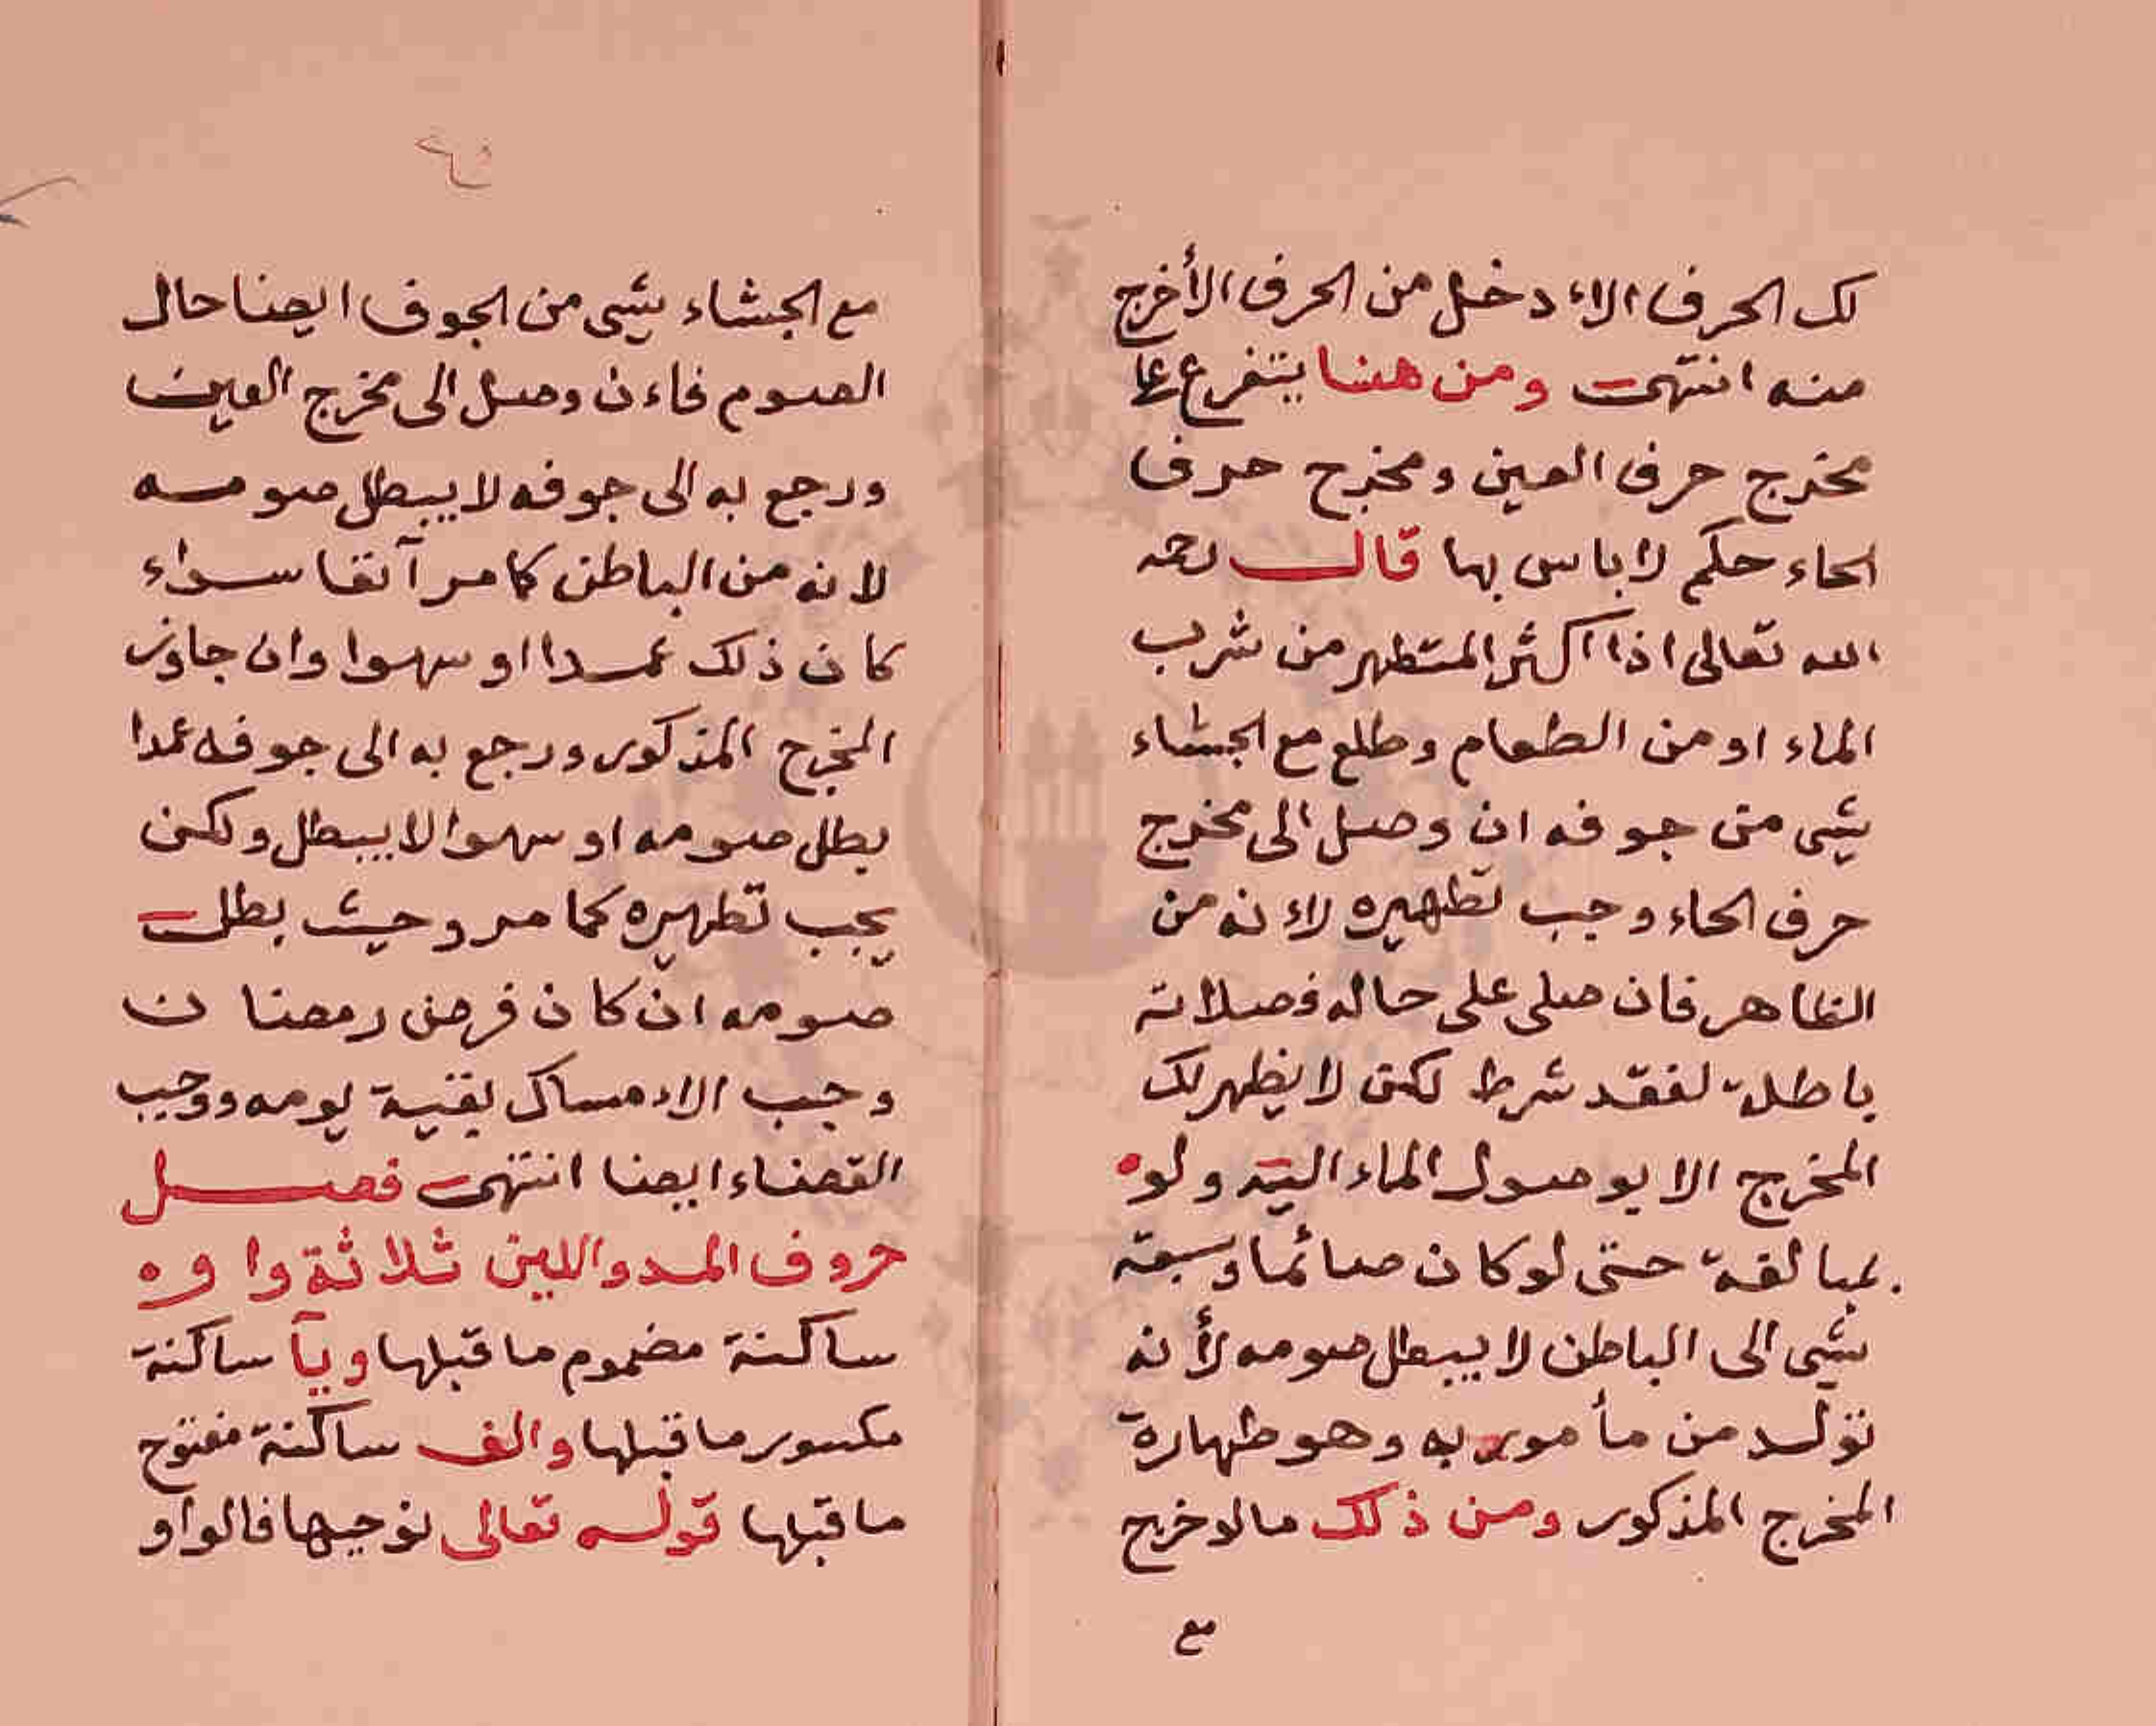 لك الحرف الاءدخل من الحرف الأخرج
منه انتهى ومن هنا يتفرع علا
مخرج حرف العين ومخرج حرف
الحاء حكم لاباس بها قال رحمه
الله تعالى اذا اكثر المتطهر من شرب
الماء او من الطعام وطلع مع الجشاء
شي من جوفه ان وصل الى مخرج
حرف الحاء وجب تطهيره لاءنه من
الظاهر فان صلى على حاله فصلاته
باطلة لفقد شرط لكن لا يظهر لك
المخرج الا بوصول الماء اليه ولو
بمبالغة حتى لو كان صائما وسبقه
شي الى الباطن لا يبطل صومه لأنه
تولد من مأمور به وهو طهارة
المخرج المذكور ومن ذلك مالو خرج
مع
مع الجشاء شي من الجوف ايضا حال
الصوم فاءن وصل الى مخرج العين
ورجع به الى جوفه لا يبطل صومه
لانه من الباطن كامر آنفا سواء
كان ذلك عمدا او سهوا وان جاوز
المخرج المذكور ورجع به الى جوفه عمدا
بطل صومه او سهوا لا يبطل ولكن
يجب تطهيره كما مر وحيث بطل
صومه ان كان فرض رمضان
وجب الاءمساك بقية يومه ووجب
القضاء ايضا انتهى فصل
حروف المد واللين ثلاثة واو
ساكنة مضموم ما قبلها ويآ ساكنة
مكسور ما قبلها والف ساكنة مفتوح
ما قبلها قوله تعالى نوحيها فالواو